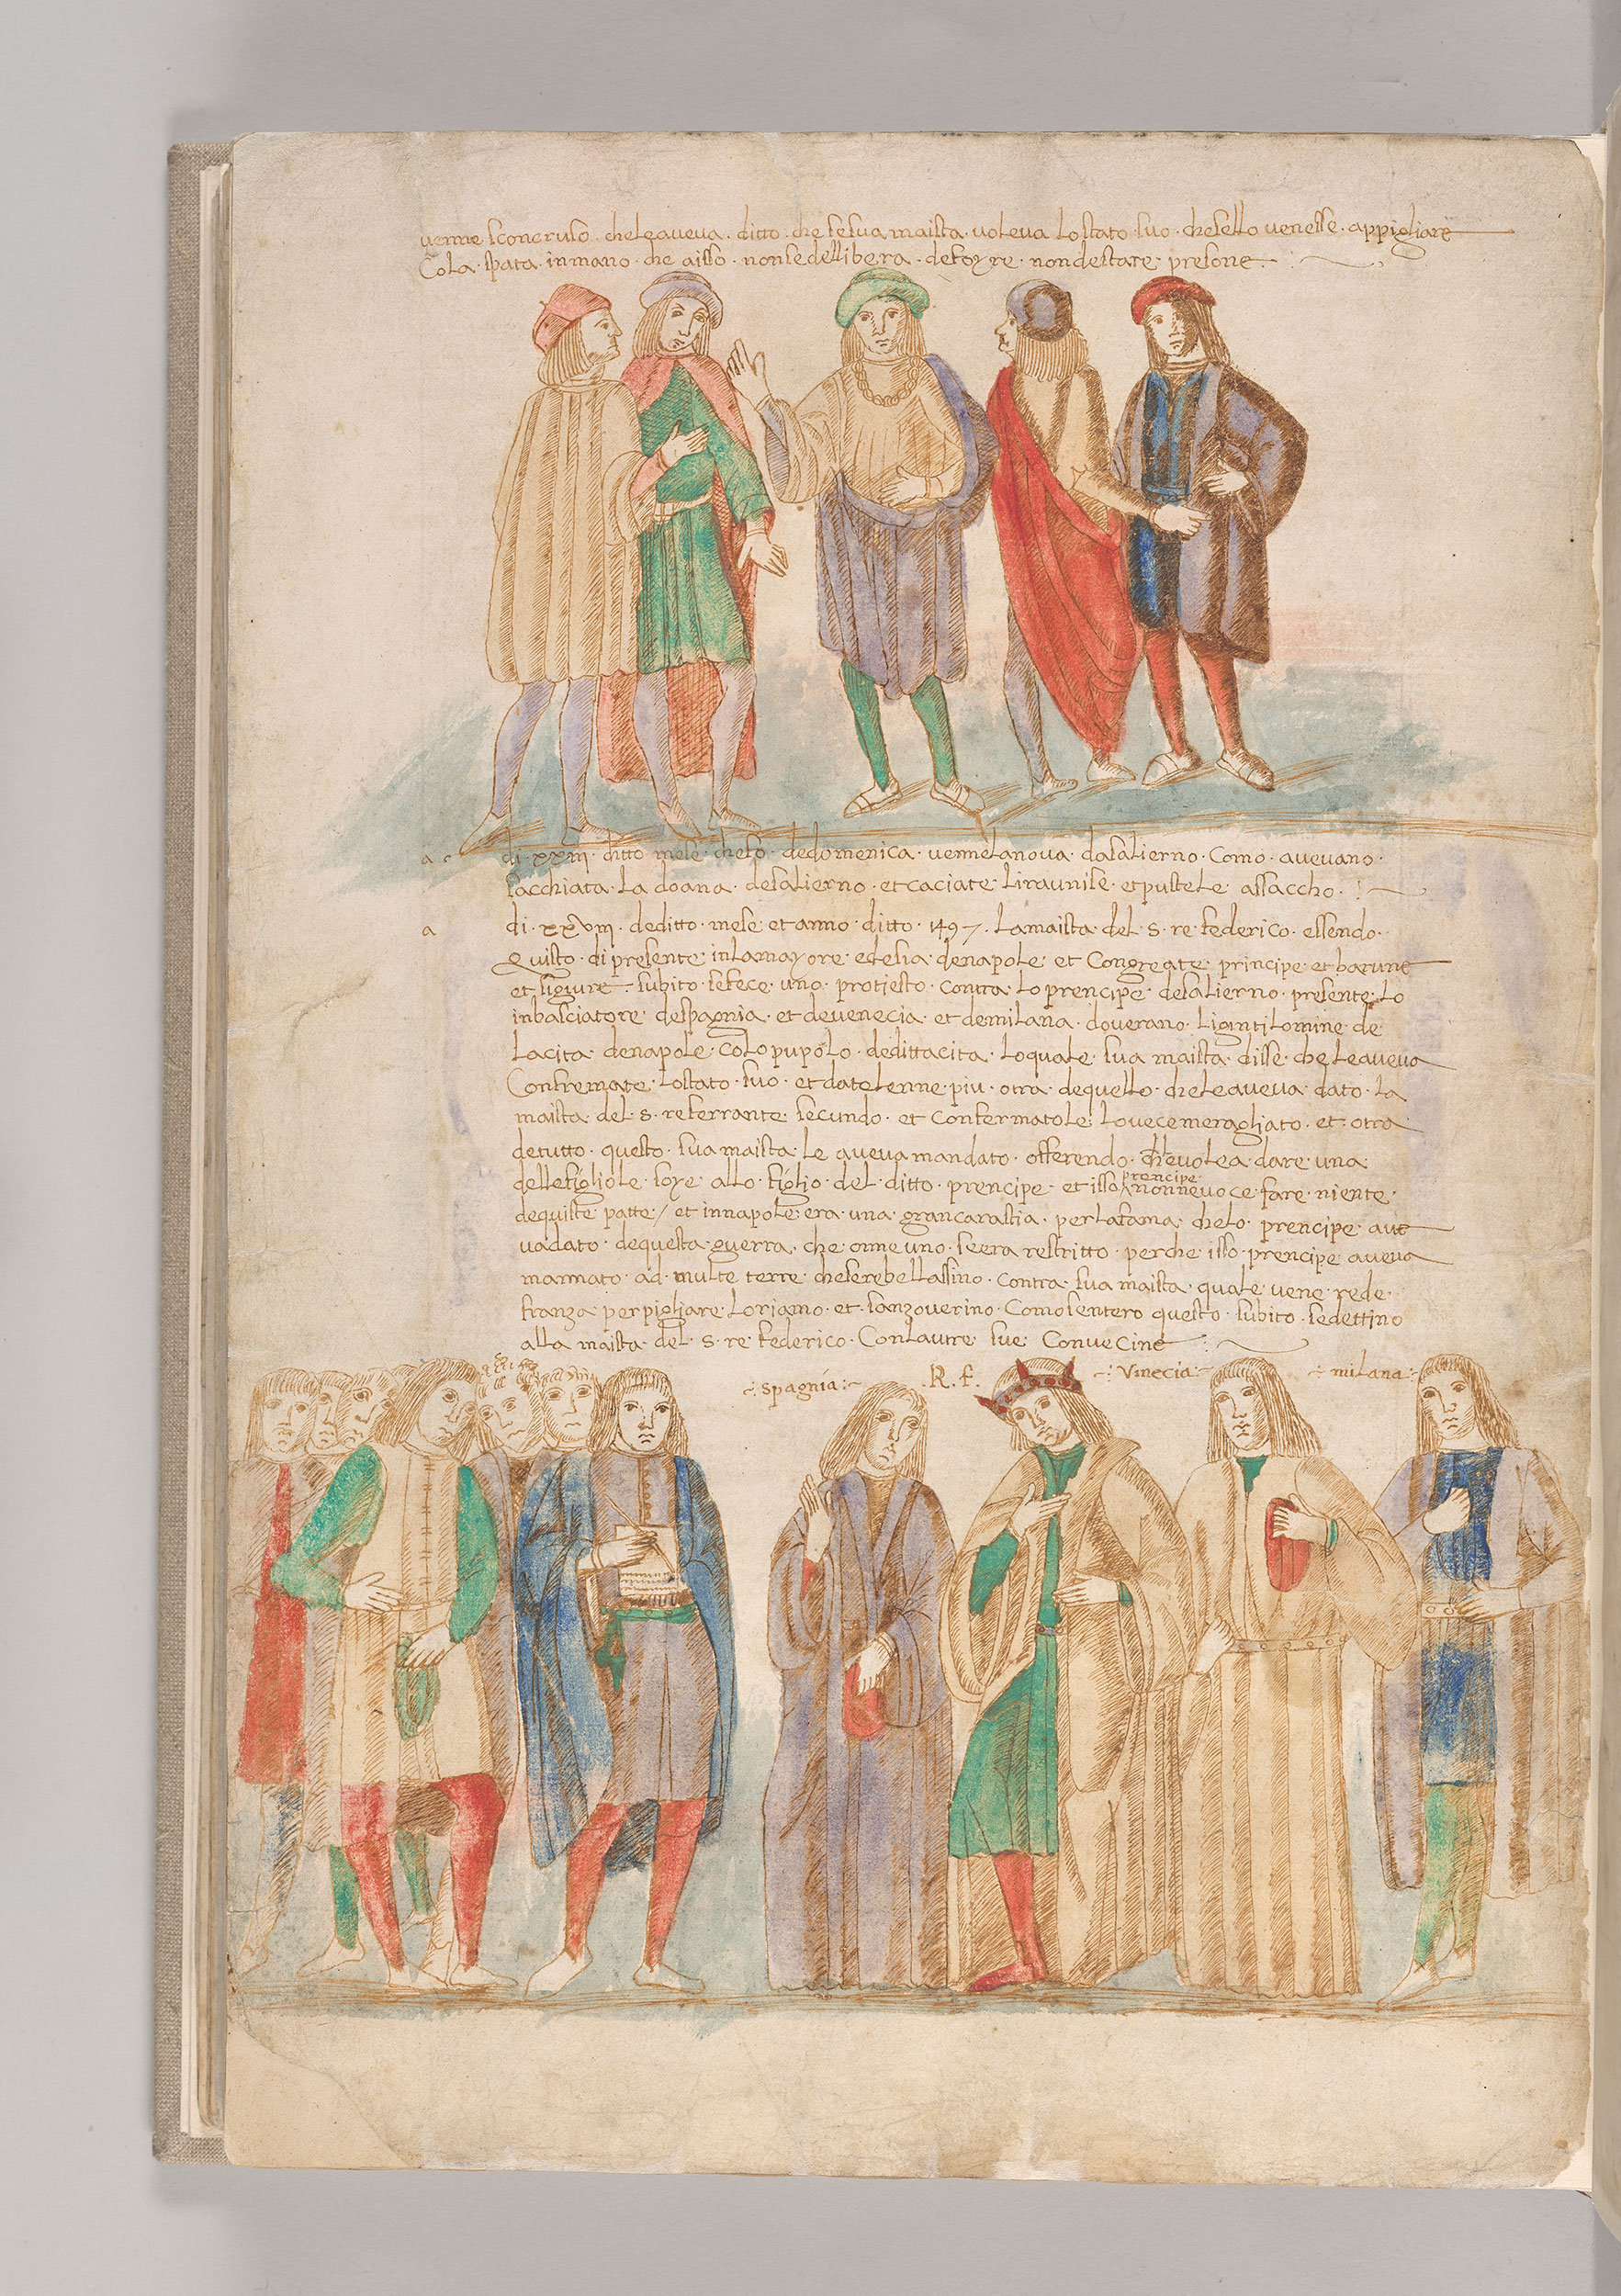 venne sconcruso · cheleaveva · ditto · che se sua maista · voleva lo stato suo · chesello venesse · appigliare
Cola · spata · inmano · che aisso · nonsedellibera · de foyre · nondestare · presone ·
a di · xxiii · ditto mese · che fo · dedomenica · vennelanova · dasalierno · Como · avevano ·
sacchiata · La doana · desalierno · et caciate · li raunise · et pustele assaccho ·
a di · xxviii · deditto · mese · et anno · ditto · 1497 · Lamaista · del · s · re · federico · essendo ·
quisto · di presente · inlamayore · eclesia · denapole · et Congregate · principe · et barune
et signure · subito · sefece · uno · protiesto · contra · Lo prencipe · desalierno · presente · Lo
inbasciatore · despagnia · et devenecia · et demilana · doverano · Ligintilomine · de
Lacita · denapole · colo pupolo · dedittacita · Loquale · sua maista · disse · cheleaveva
Confremate · Lostato · suo · et datolenne · piu · otra · dequello · cheleaveva · dato · La
maista · del · s · re ferrante · secundo · et confermatole · Lovecemeragliato · et · otra
detutto · questo · sua maista · Le aveva mandato · offerendo · chevolea · dare · una
dellefigliole · soye · allo · figlio · del · ditto · prencipe · et isso prencipe nonnevoce · fare · niente ·
dequiste patte / et innapole · era · una · grancarastia · perlafama · chelo · prencipe · ave
vadato · dequesta guerra · che onneuno · seera restritto · perche · isso · prencipe aveva
mannato · ad · multe terre · cheserebellassino · Contra · sua maista · quale · vene · rede ·
franza · per pigliare · Loriamo · et · sanzoverino · Comosentero questo · subito · sedettino
alla maista · del · s · re · federico · Conlautre · sue · Convecine
spagnia · R · f · vinecia · milana